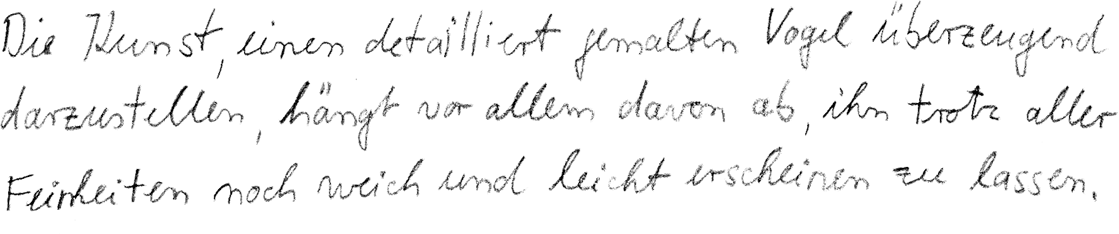 Die Kunst, einen detailliert gemalten Vogel überzeugend
darzustellen, hängt vor allem davon ab, ihn trotz aller
Feinheiten noch weich und leicht erscheinen zu lassen.